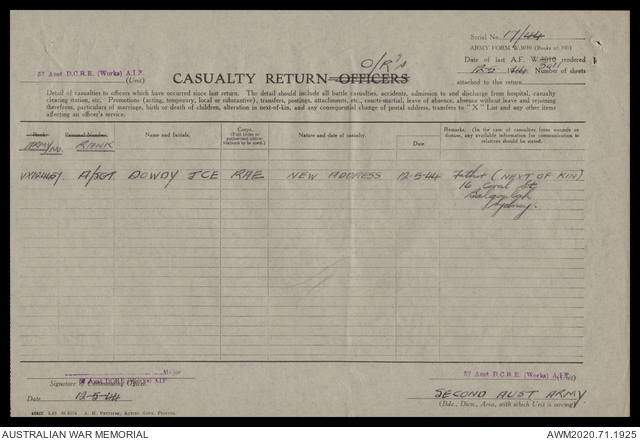 Serial No. 17/44
ARMY FORM W.3010 (Books of 100)
O/R's
Date of last A.F. W.3010 rendered
3011
57 Aust D.C.R.E. (Works) A.I.F. (Unit)
CASUALTY RETURN—OFFICERS
12-5-44 Number of sheets
attached to this return
Detail of casualties to officers which have occurred since last return. The detail should include all battle casualties, accidents, admission to and discharge from hospital, casualty
clearing station, etc. Promotions (acting, temporary, local or substantive), transfers, postings, attachments, etc., courts-martial, leave of absence, absence without leave and rejoining
therefrom, particulars of marriage, birth or death of children, alteration in next-of-kin, and any consequential change of postal address, transfers to "X" List and any other items
affecting an officer's service.
Rank. Personal Number. Name and Initials. Corps. (Full titles or authorized abbreviations to be used.) Nature and date of casualty. Date Remarks. (In the case of casualties from wounds or disease, any available information for communication to relatives should be stated.
ARMY NO. RANK
A/SGT DOWDY JCE RAE NEW ADDRESS 12-5-44 Father (NEXT OF KIN)
16 Coral St
Balgowlah
Sydney.
Major
57 Aust DCRE (Works) AIF
Signature of Commanding Officer.
57 Aust D.C.R.E. (Works) A.I.F. (Unit)
Date 12-5-44
SECOND AUST ARMY
(Bde., Divn., Area, with which Unit is serving)
AUSTRALIAN WAR MEMORIAL
AWM2020.71.1925